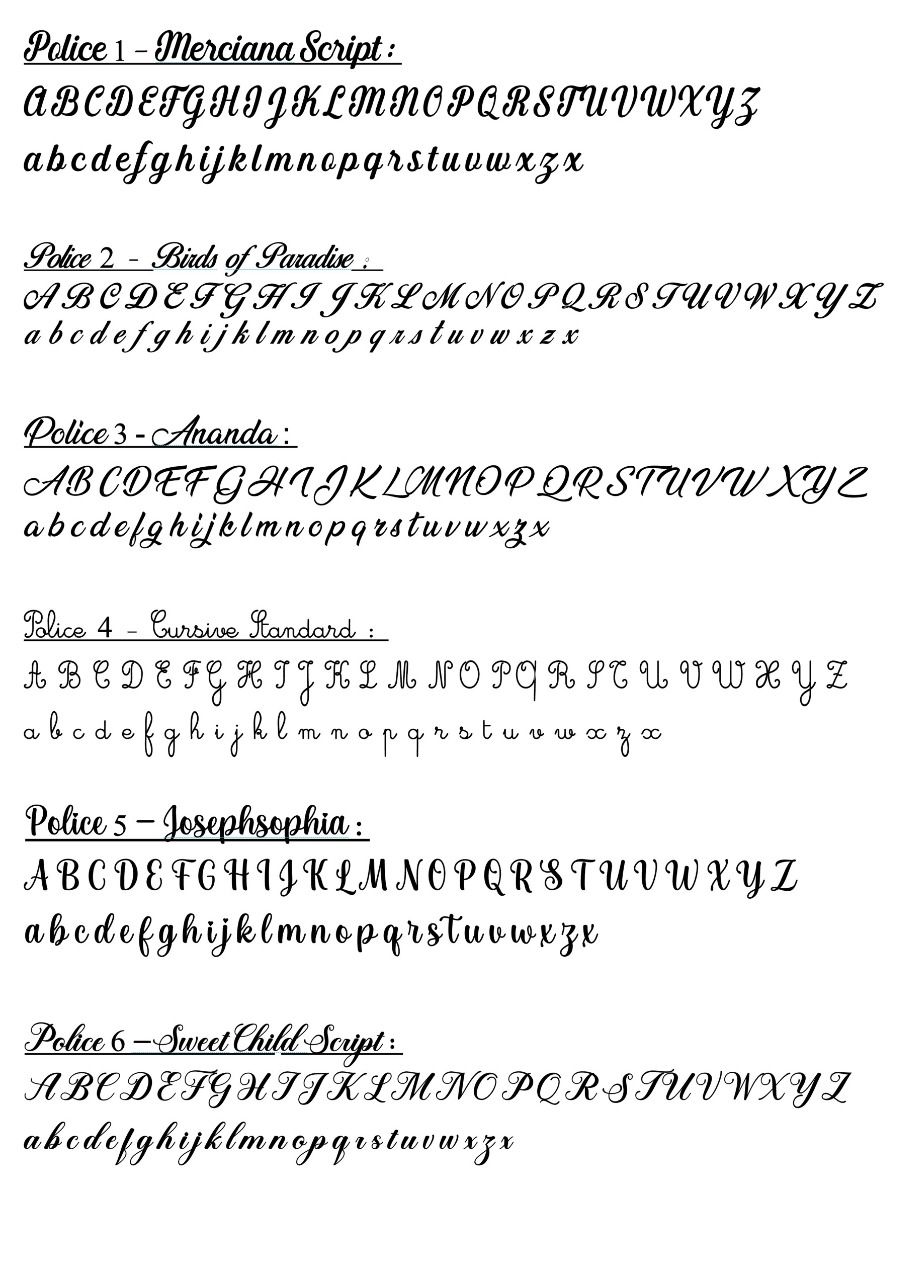 Police 1 – Merciana Script :
ABCDEFGHIJKLMNOPQRSTUVWXYZ
abcdefghijklmnopqrstuvwxzx
Police 2 - Birds of Paradise :
ABCDEFGHIJKLMNOPQRSTUVWXYZ
abcdefghijklmnopqrstuvwxzx
Police 3 - Ananda :
ABCDEFGHIJKLMNOPQRSTUVWXYZ
abcdefghijklmnopqrstuvwxzx
Police 4 – Cursive Standard :
A B C D E F G H I J K L M N O P Q R S T U V W X Y Z
a b c d e f g h i j k l m n o p q r s t u v w x z x
Police 5 – Josephsophia :
ABCDEFGHIJKLMNOPQRSTUVWXYZ
abcdefghijklmnopqrstuvwxzx
Police 6 – Sweet Child Script :
ABCDEFGHIJKLMNOPQRSTUVWXYZ
abcdefghijklmnopqrstuvwxzx